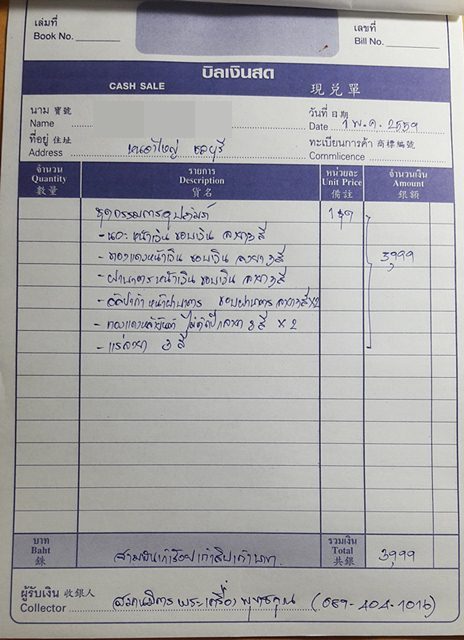 เล่มที่ เลขที่
Book No. Bill No.
บิลเงินสด
CASH SALE 現兌單
นาม 寶號 วันที่ 日期
Name Date 1 พ.ค. 2559
ที่อยู่ 住址 ทะเบียนการค้า 商標編號
Address เขาใหญ่ ชลบุรี Commlicence.
จำนวน รายการ หน่วยละ จำนวนเงิน
Quantity Description Unit Price Amount
數量 貨名 備註 銀額
ชุดกรรมการอุปถัมภ์ 1 ชุด
- หน้าเงิน ขอบเงิน ลงยา 3 สี
- ทองแดงหน้าเงิน ขอบเงิน ลงยา 3 สี 3,999
- ฝาบาตรหน้าเงิน ขอบเงิน ลงยา 3 สี
- อัลปาก้า หน้าฝาบาตร ขอบฝาบาตร ลงยา 3 สี x2
- ทองแดง ไม่ตัดปีก ลงยา 3 สี x 2
- แร่ ลงยา 3 สี
บาท รวมเงิน
Baht สามพันเก้าร้อยเก้าสิบเก้าบาท Total 3,999
銖 共銀
ผู้รับเงิน 收銀人
Collector สมานมิตร พระเครื่อง พุทธคุณ (089-404-1016)